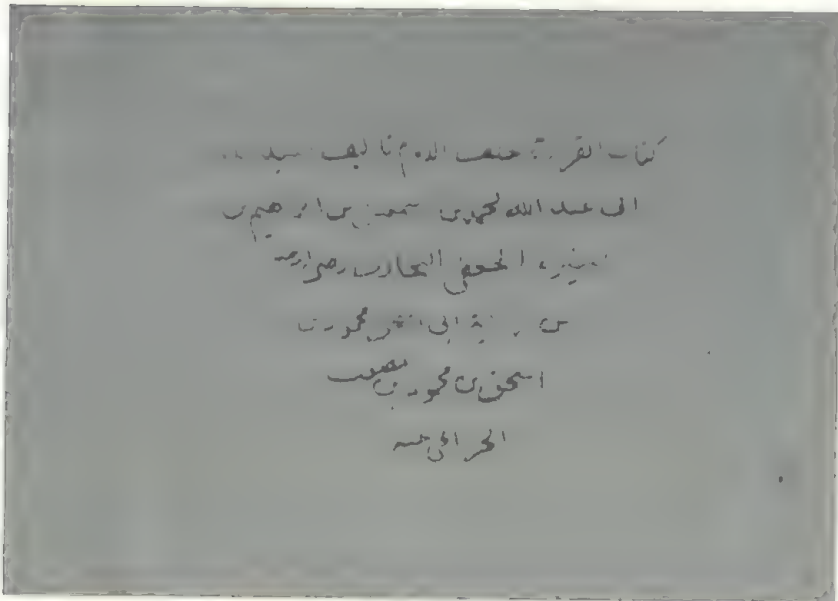 كتاب القراءة خلف الامام تاليف
ابى عبد الله محمد بن اسمعيل بن ابرهيم بن
المغيرة الجعفى البخارى رضى الله عنه
من رواية ابى محمود بن
اسحق بن محمود بن
الخزاعى عنه